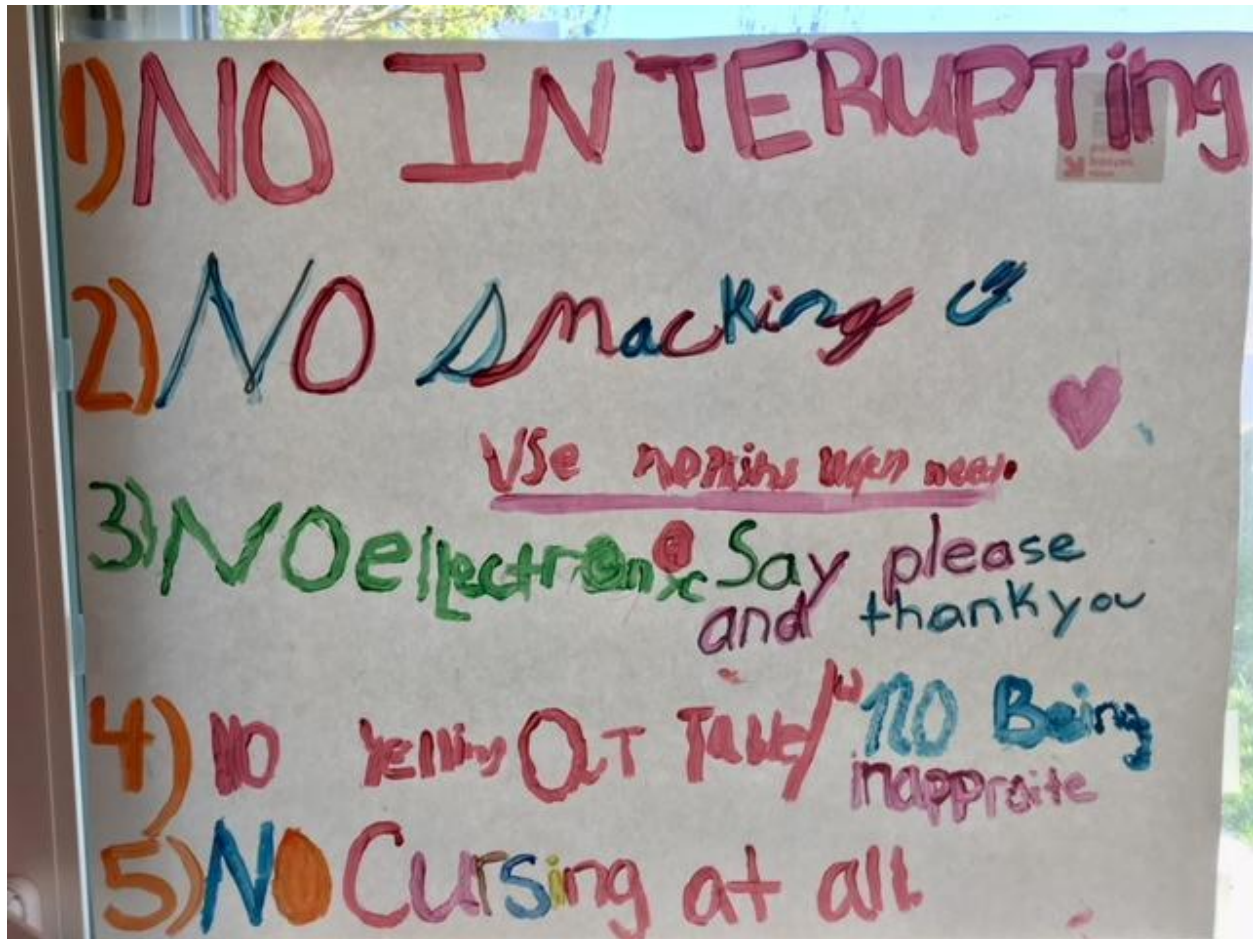 1) NO INTERUPTing
2) NO smacking
Use napkins when need.
3) NO ellectronic Say please
and thank you
4) NO Yelling at Table/ NO Being
inapproite
5) NO Cursing at all.